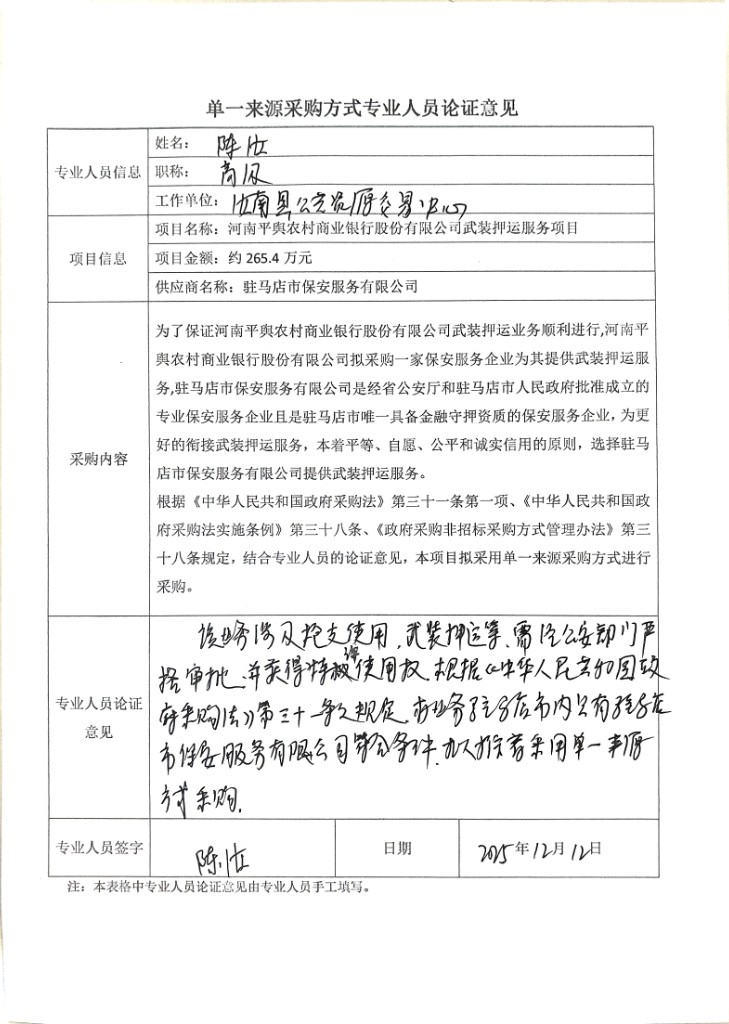 单一来源采购方式专业人员论证意见
专业人员信息
姓名： 陈汝
职称： 高级
工作单位： 汝南县公共资源交易中心
项目信息
项目名称：河南平舆农村商业银行股份有限公司武装押运服务项目
项目金额：约 265.4 万元
供应商名称：驻马店市保安服务有限公司
采购内容
为了保证河南平舆农村商业银行股份有限公司武装押运业务顺利进行,河南平
舆农村商业银行股份有限公司拟采购一家保安服务企业为其提供武装押运服
务,驻马店市保安服务有限公司是经省公安厅和驻马店市人民政府批准成立的
专业保安服务企业且是驻马店市唯一具备金融守押资质的保安服务企业，为更
好的衔接武装押运服务，本着平等、自愿、公平和诚实信用的原则，选择驻马
店市保安服务有限公司提供武装押运服务。
根据《中华人民共和国政府采购法》第三十一条第一项、《中华人民共和国政
府采购法实施条例》第三十八条、《政府采购非招标采购方式管理办法》第三
十八条规定，结合专业人员的论证意见，本项目拟采用单一来源采购方式进行
采购。
专业人员论证
意见
该业务涉及枪支使用，武装押运等，需经公安部门严
格审批，并获得持枪使用权，根据《中华人民共和国政
府采购法》第三十一条之规定，业务驻马店市内只有驻马店
市保安服务有限公司符合条件，推荐采用单一来源
方式采购.
专业人员签字
陈汝
日期
2025年12月12日
注：本表格中专业人员论证意见由专业人员手工填写。